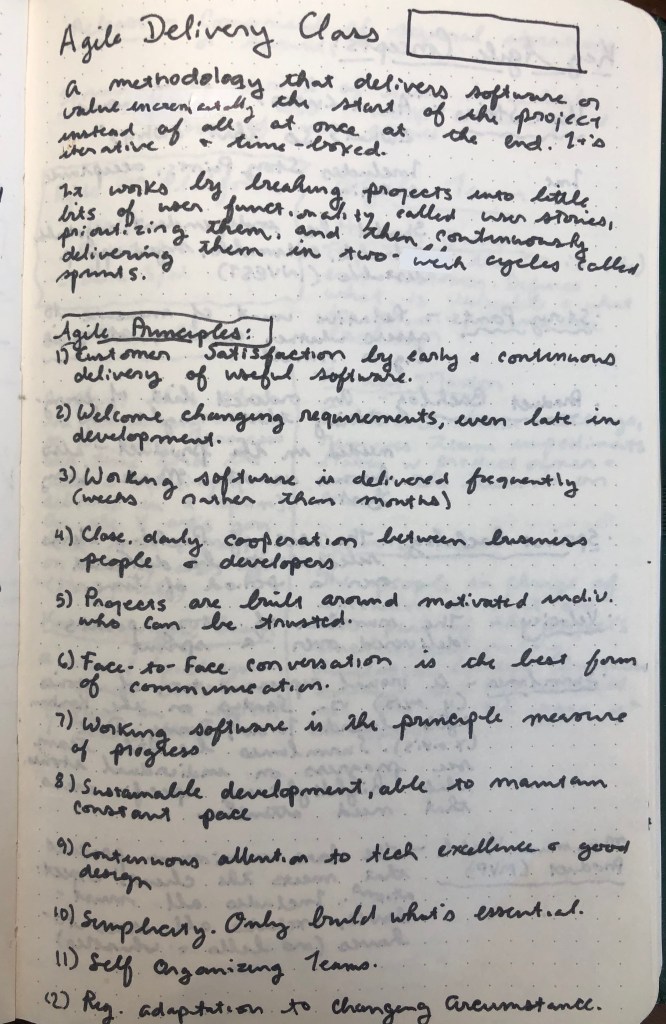 Agile Delivery Class
a methodology that delivers software or
value incrementally the start of the project
instead of all at once at the end. It's
iterative & time-boxed.
It works by breaking projects into little
bits of user functionality called user stories,
prioritizing them, and then continuously
delivering them in two-week cycles called
sprints.
Agile Principles:
1) Customer Satisfaction by early & continuous
delivery of useful software.
2) Welcome changing requirements, even late in
development.
3) Working software is delivered frequently
(weeks rather than months)
4) Close, daily cooperation between business
people & developers
5) Projects are built around motivated indiv.
who can be trusted.
6) Face-to-Face conversation is the best form
of communication.
7) Working software is the principle measure
of progress
8) Sustainable development, able to maintain
constant pace
9) Continuous attention to tech excellence & good
design
10) Simplicity. Only build what's essential.
11) Self Organizing Teams.
12) Reg. adaptation to changing circumstance.